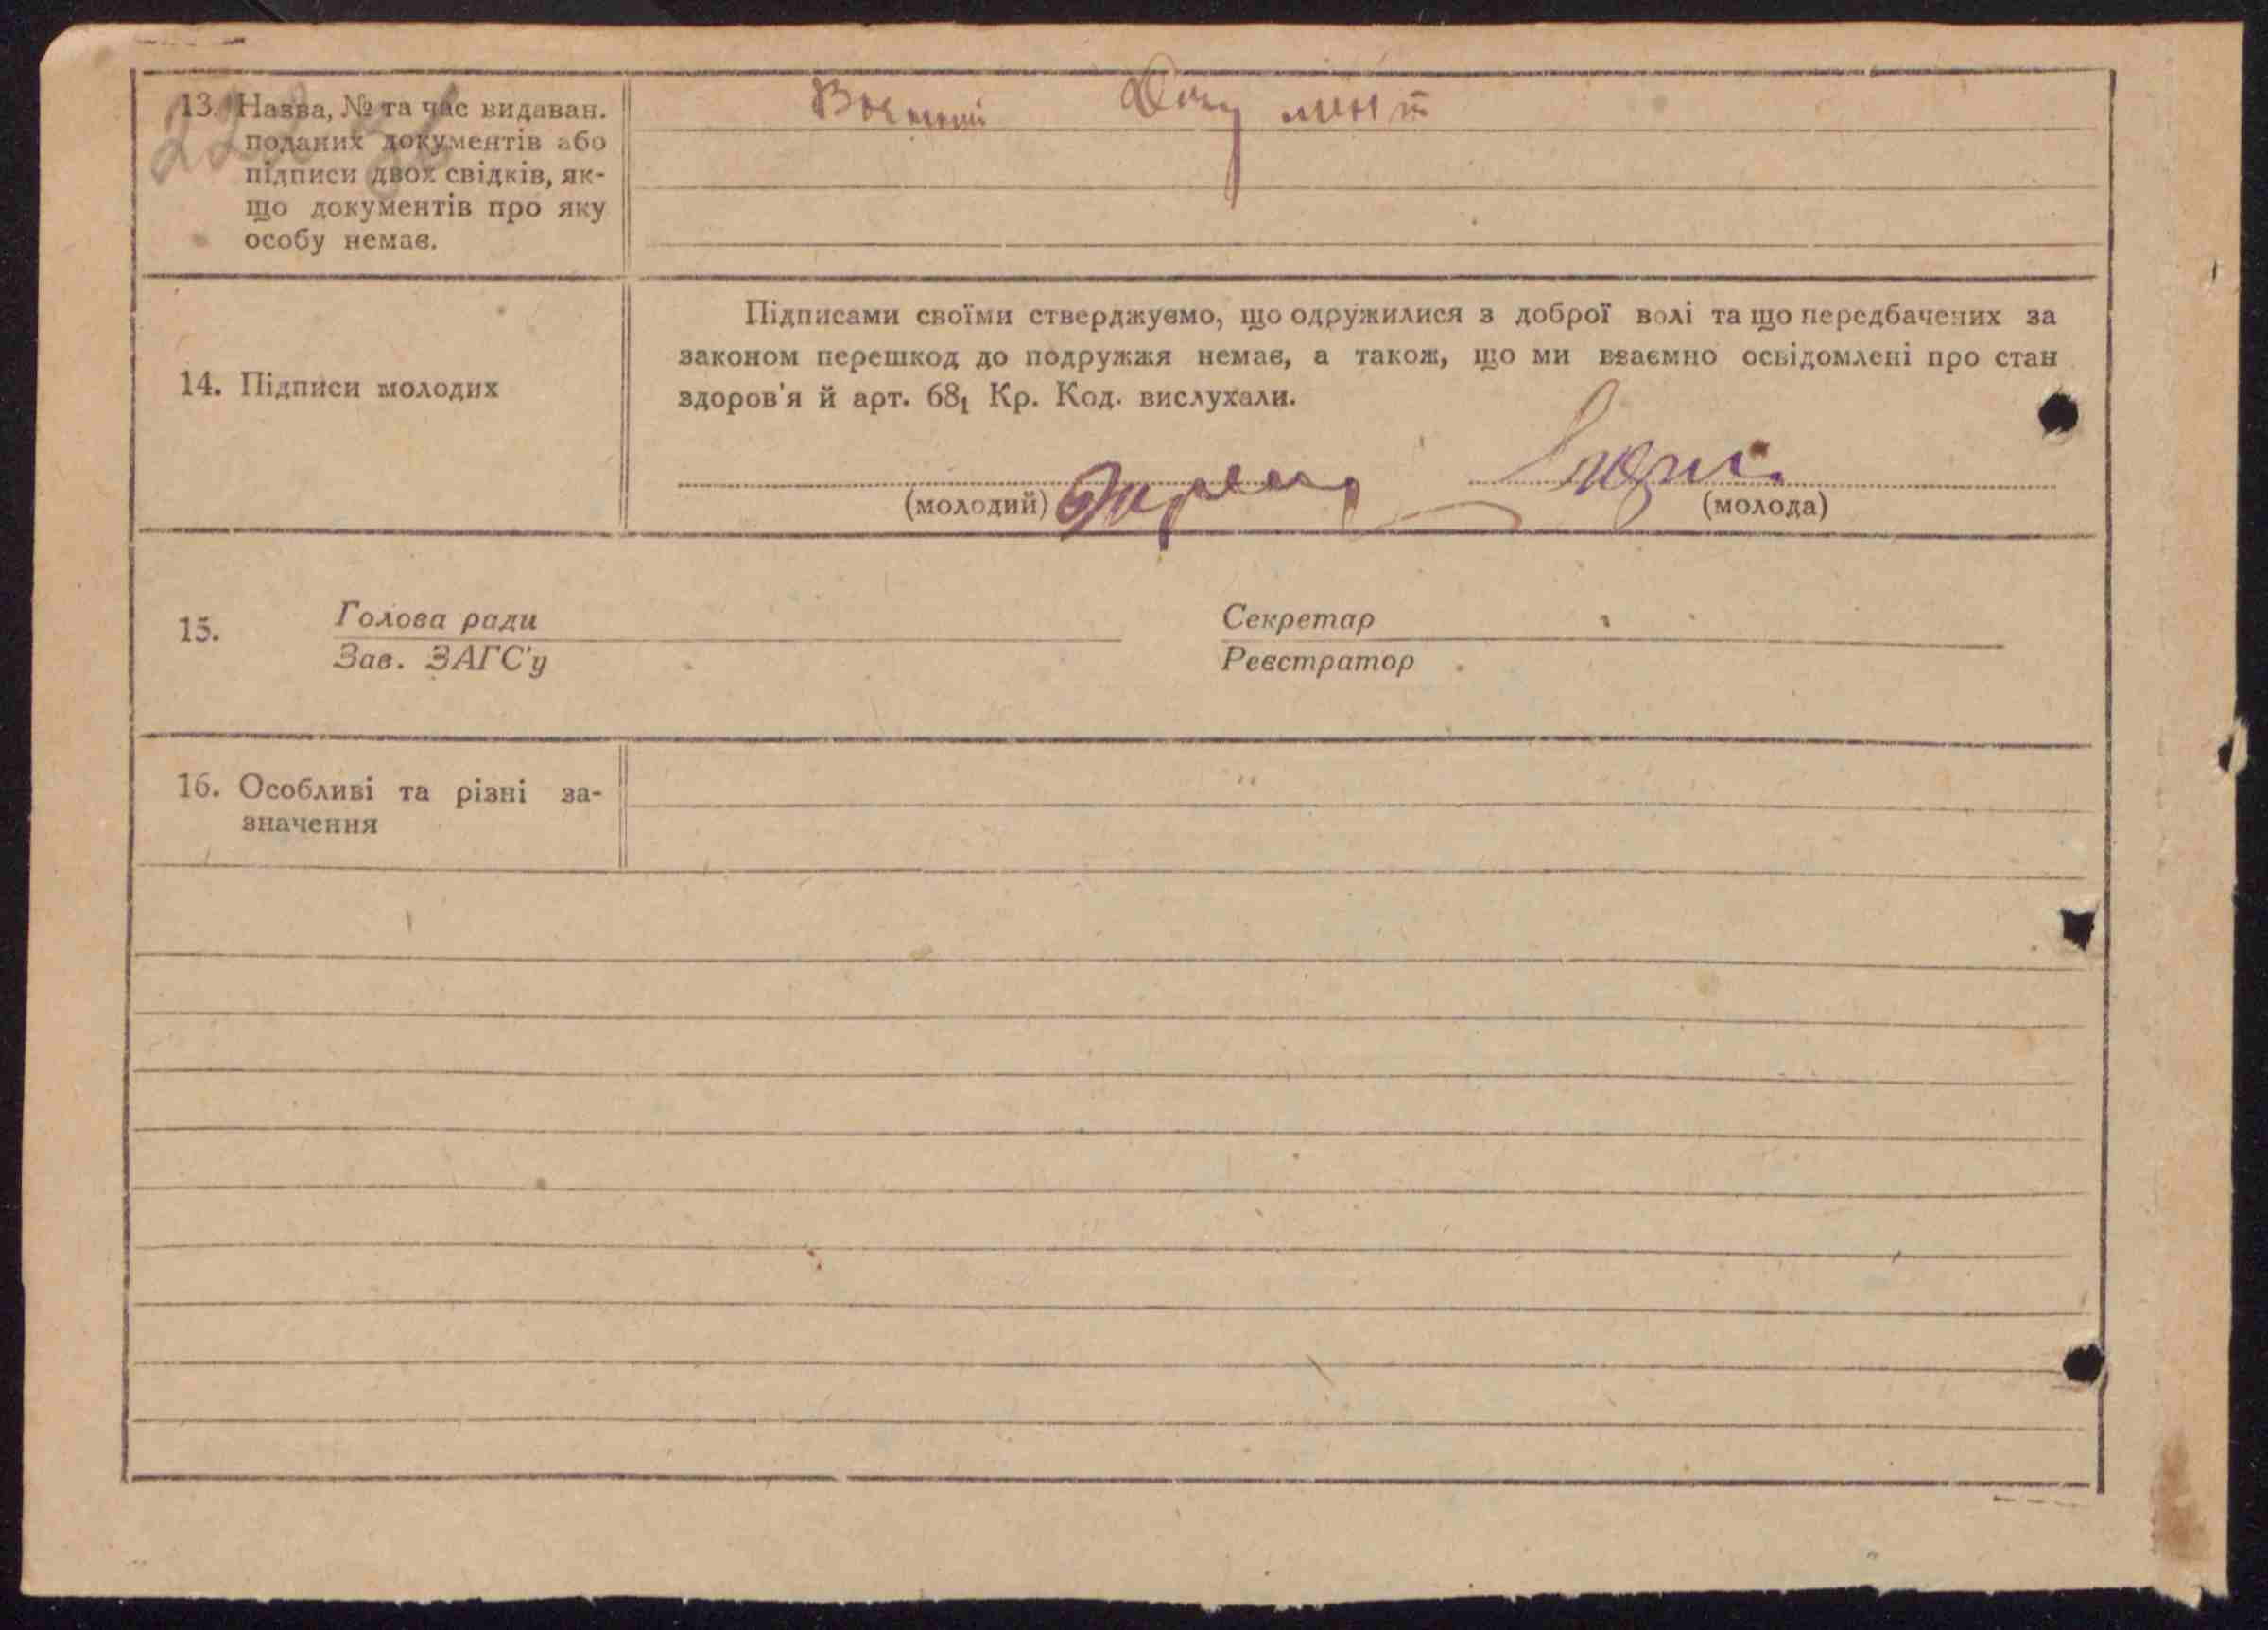 13. Назва, № та час видаван.
поданих документів або
підписи двох свідків, як-
що документів про яку
особу немає.
Воєнний Документ
14. Підписи молодих
Підписами своїми стверджуємо, що одружилися з доброї волі та що передбачених за
законом перешкод до подружжя немає, а також, що ми взаємно освідомлені про стан
здоров'я й арт. 68₁ Кр. Код. вислухали.
(молодий)
(молода)
15.
Голова ради
Зав. ЗАГС'у
Секретар
Реєстратор
16. Особливі та різні за-
значення